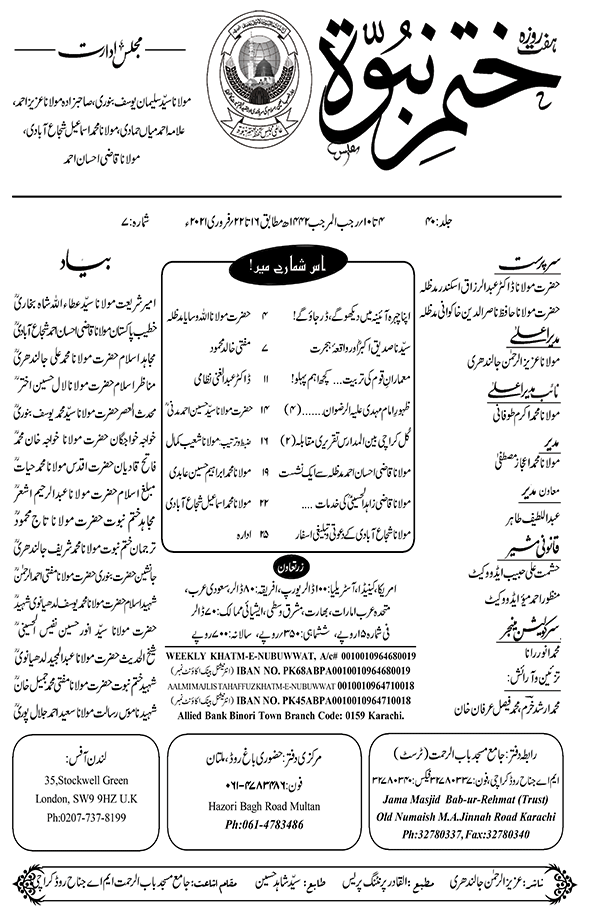 ہفت روزہ
ختم نبوۃ
مجلس ادارت
مولانا سیّد سلیمان یوسف بنوری، صاحبزادہ مولانا عزیز احمد،
علامہ احمد میاں حمادی، مولانا محمد اسماعیل شجاع آبادی،
مولانا قاضی احسان احمد
جلد: ۴۰
۴ تا ۱۰؍ رجب المرجب ۱۴۴۲ھ مطابق ۱۶ تا ۲۲؍ فروری ۲۰۲۱ء
شمارہ: ۷
سرپرست
حضرت مولانا ڈاکٹر عبدالرزاق اسکندر مدظلہ
حضرت مولانا حافظ ناصر الدین خاکوانی مدظلہ
مدیر اعلیٰ
مولانا عزیز الرحمٰن جالندھری
نائب مدیر اعلیٰ
مولانا محمد اکرم طوفانی
مدیر
مولانا محمد اعجاز مصطفیٰ
معاون مدیر
عبداللطیف طاہر
قانونی مشیر
حشمت علی حبیب ایڈووکیٹ
منظور احمد میؤ ایڈووکیٹ
سرکولیشن منیجر
محمد انور رانا
تزئین و آرائش:
محمد ارشد خرم، محمد فیصل عرفان خان
اس شمارے میں!
اپنا چہرہ آئینہ میں دیکھو گے، ڈر جاؤ گے! ۴ حضرت مولانا اللہ وسایا مدظلہ
سیّدنا صدیق اکبرؓ اور واقعۂ ہجرت ۷ مفتی خالد محمود
معمارانِ قوم کی تربیت... کچھ اہم پہلو! ۱۱ ڈاکٹر عبدالغنی نظامی
ظہور امام مہدی علیہ الرضوان...... (۴) ۱۴ حضرت مولانا سیّد حسین احمد مدنیؒ
کل کراچی بین المدارس تقریری مقابلہ (۲) ۱۶ ضبط و ترتیب: مولانا شعیب کمال
مولانا قاضی احسان احمد مدظلہ سے ایک نشست ۱۹ مولانا محمد ابراہیم حسین عابدی
مولانا قاضی زاہد الحسینیؒ کی خدمات .... ۲۲ مولانا محمد اسماعیل شجاع آبادی
مولانا شجاع آبادی کے دعوتی و تبلیغی اسفار ۲۵ ادارہ
زرتعاون
امریکا، کینیڈا، آسٹریلیا: ۱۰۰ ڈالر یورپ، افریقہ: ۸۰ ڈالر، سعودی عرب،
متحدہ عرب امارات، بھارت، مشرق وسطی، ایشیائی ممالک: ۷۰ ڈالر
فی شمارہ ۱۵ روپے، ششماہی: ۳۵۰ روپے، سالانہ: ۷۰۰ روپے
WEEKLY KHATM-E-NUBUWWAT, A/c# 0010010964680019
IBAN NO. PK68ABPA0010010964680019 (انٹرنیشنل بینک اکاؤنٹ نمبر)
AALMIMAJLISTAHAFFUZKHATM-E-NUBUWWAT 0010010964710018
IBAN NO. PK45ABPA0010010964710018 (انٹرنیشنل بینک اکاؤنٹ نمبر)
Allied Bank Binori Town Branch Code: 0159 Karachi.
بیاد
امیر شریعت مولانا سیّد عطاء اللہ شاہ بخاریؒ
خطیب پاکستان مولانا قاضی احسان احمد شجاع آبادیؒ
مجاہد اسلام حضرت مولانا محمد علی جالندھریؒ
مناظر اسلام حضرت مولانا لال حسین اخترؒ
محدث العصر حضرت مولانا سیّد محمد یوسف بنوریؒ
خواجہ خواجگان حضرت مولانا خواجہ خان محمدؒ
فاتح قادیان حضرت اقدس مولانا محمد حیاتؒ
مبلغ اسلام حضرت مولانا عبدالرحیم اشعرؒ
مجاہد ختم نبوت حضرت مولانا تاج محمودؒ
ترجمان ختم نبوت مولانا محمد شریف جالندھریؒ
جانشین حضرت بنوری حضرت مولانا مفتی احمد الرحمٰنؒ
شہید اسلام حضرت مولانا محمد یوسف لدھیانوی شہیدؒ
حضرت مولانا سیّد انور حسین نفیس الحسینیؒ
شیخ الحدیث حضرت مولانا عبدالمجید لدھیانویؒ
شہید ختم نبوت حضرت مولانا مفتی محمد جمیل خانؒ
شہید ناموس رسالت مولانا سعید احمد جلال پوریؒ
رابطہ دفتر: جامع مسجد باب الرحمت (ٹرسٹ)
ایم اے جناح روڈ کراچی، فون: ۳۲۷۸۰۳۳۷ فیکس: ۳۲۷۸۰۳۴۰
Jama Masjid Bab-ur-Rehmat (Trust)
Old Numaish M.A.Jinnah Road Karachi
Ph:32780337, Fax:32780340
مرکزی دفتر: حضوری باغ روڈ، ملتان
فون: ۰۶۱-۴۷۸۳۴۸۶
Hazori Bagh Road Multan
Ph:061-4783486
لندن آفس:
35,Stockwell Green
London, SW9 9HZ U.K
Ph:0207-737-8199
ناشر: عزیز الرحمٰن جالندھری مطبع: القادر پرنٹنگ پریس طابع: سیّد شاہد حسین مقام اشاعت: جامع مسجد باب الرحمت ایم اے جناح روڈ کراچی